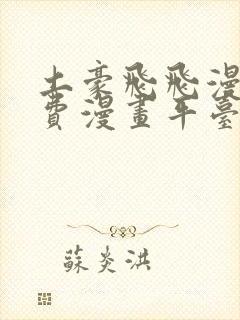 土豪飛飛漫
費漫畫平臺
蘇炎洪